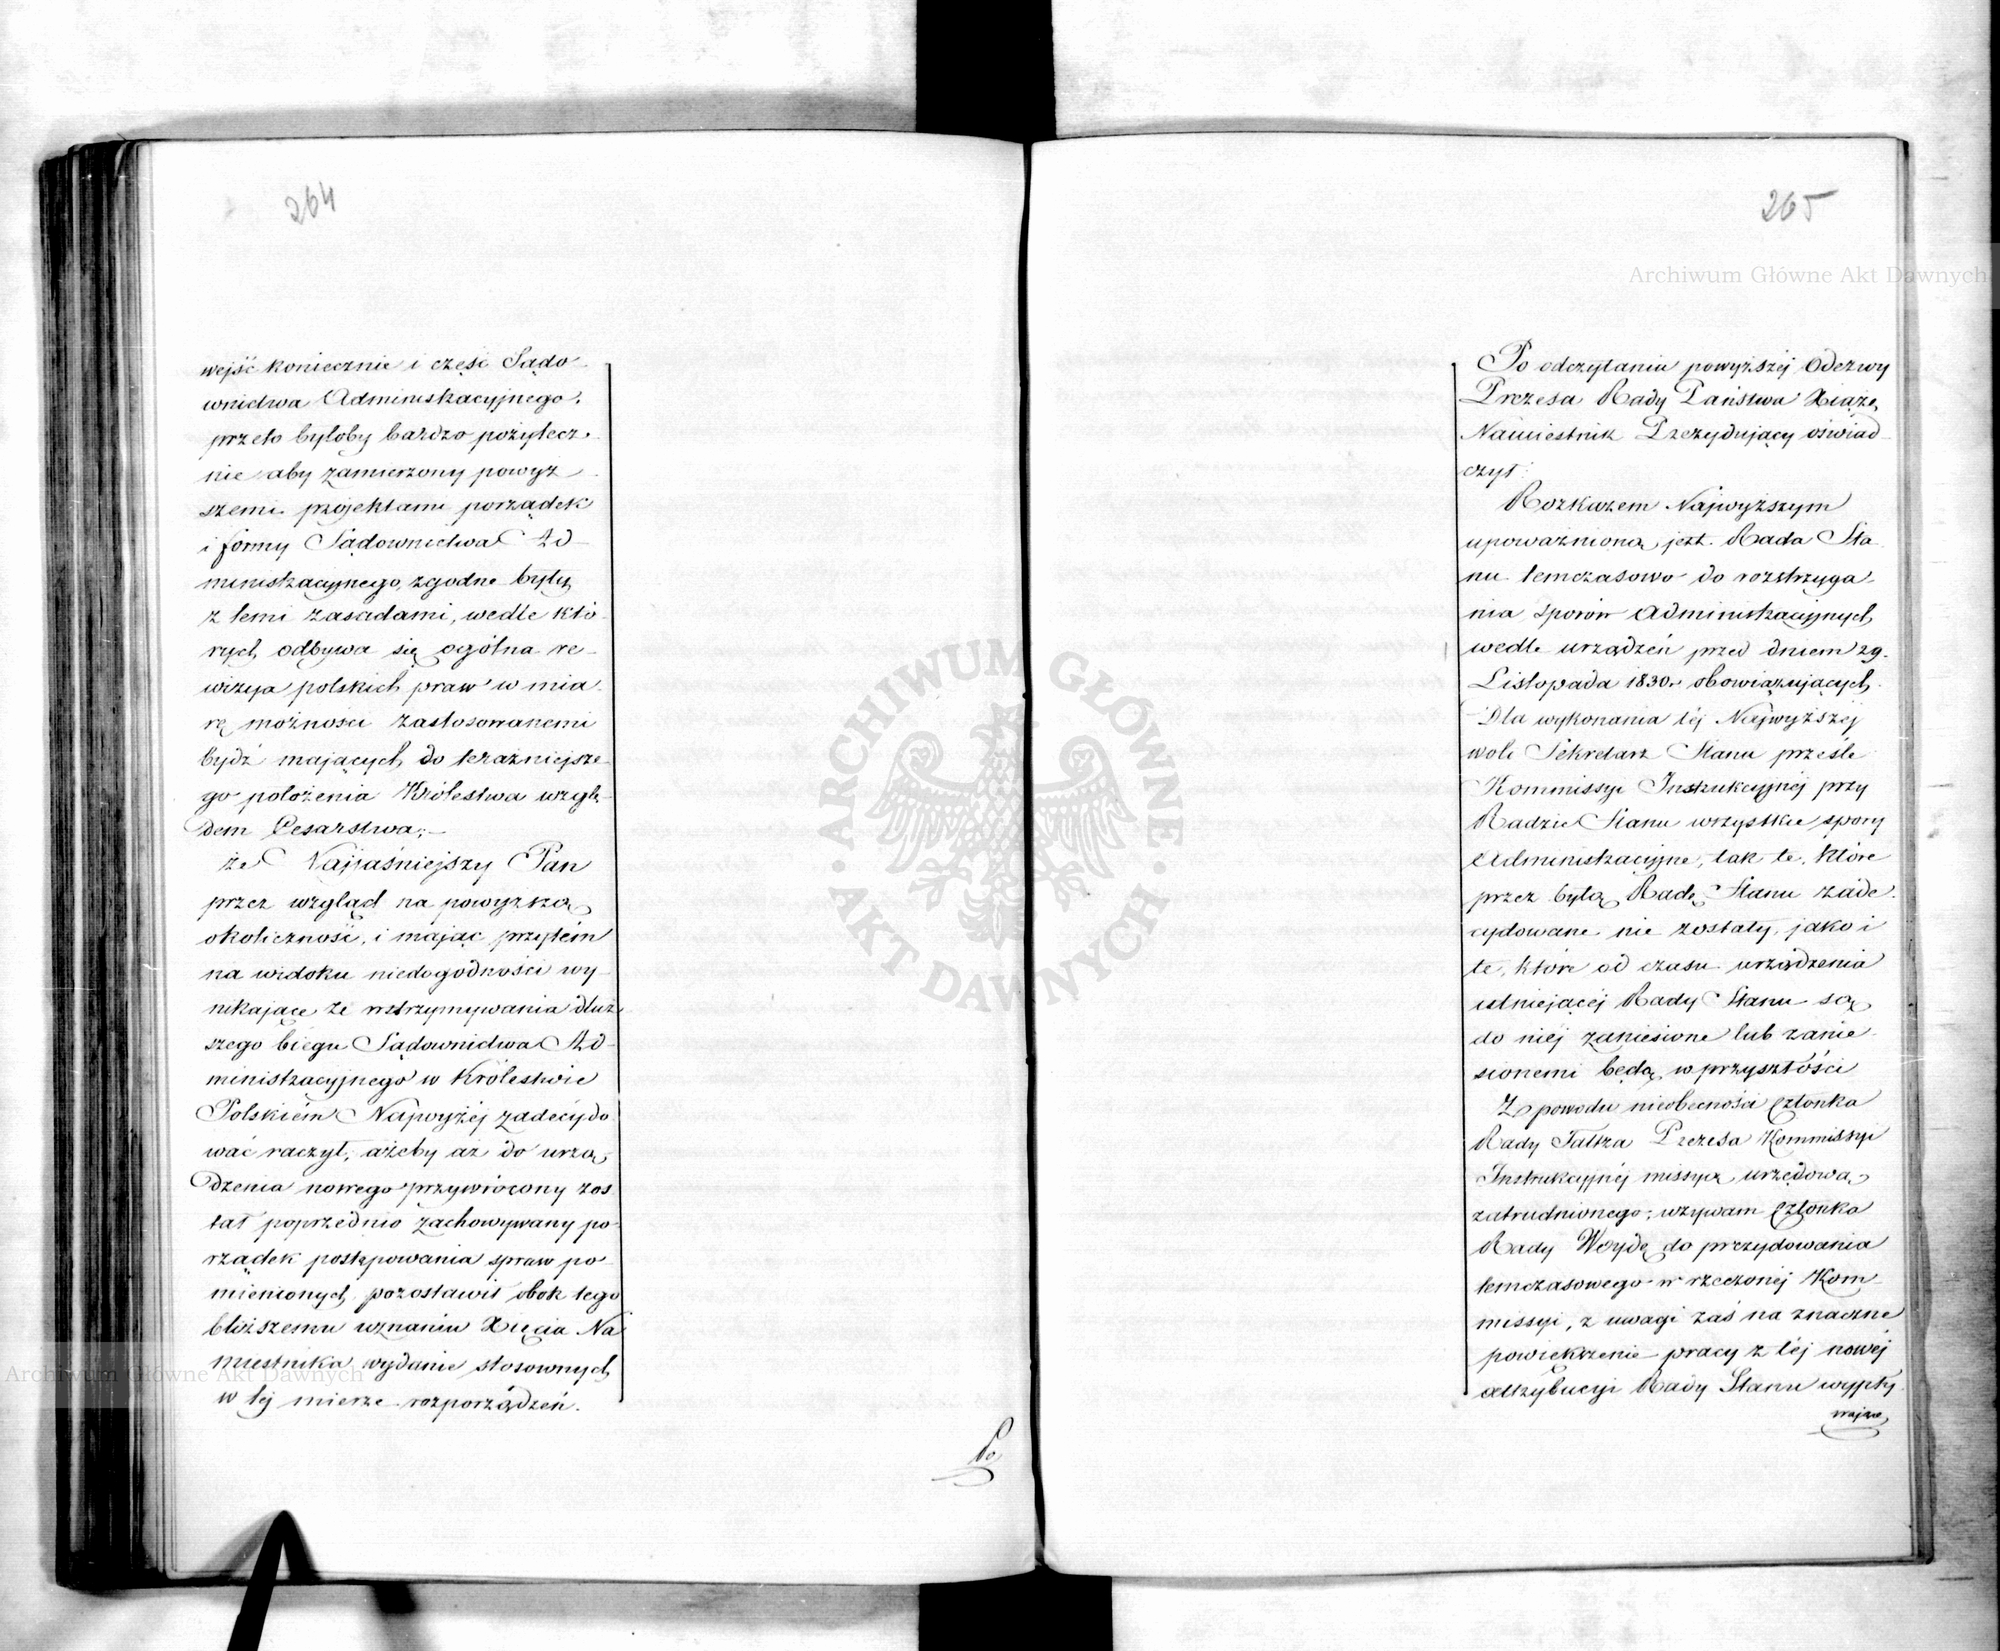 264
wejść koniecznie i część Sądo-
wnictwa Administracyjnego,
przeto byłoby bardzo pożytecz-
nie aby zamierzony powyż-
szemi projektami porządek
i formy Sądownictwa Ad-
ministracyjnego, zgodne były,
z temi zasadami, wedle któ-
rych odbywa się ogólna re-
wizya polskich praw w mia-
rę możności zastosowanemi
bydź mających do teraźniejsze-
go położenia Królestwa wzglę-
dem Cesarstwa;—
że Najjaśniejszy Pan
przez wzgląd na powyższą
okoliczność, i mając przytém
na widoku niedogodności wy-
nikające ze wstrzymywania dłuż-
szego biegu Sądownictwa Ad-
ministracyjnego w Królestwie
Polskiém Najwyżéj zadecydo-
wać raczył, ażeby aż do urzą-
dzenia nowego przywrócony zos-
tał poprzednio zachowywany po-
rządek postępowania spraw po-
mienionych, pozostawił obok tego
bliższemu uznaniu Xięcia Na-
miestnika wydanie stosownych
w tej mierze rozporządzeń.
Po
265
Po odczytaniu powyższéj Odezwy
Prezesa Rady Państwa Xiąże
Namiestnik Prezydujący oświad-
czył:
Rozkazem Najwyższym
upoważnioną jest Rada Sta-
nu temczasowo do rozstrzyga-
nia sporów Administracyjnych
wedle urządzeń przed dniem 29.
Listopada 1830 r. obowiązujących.
Dla wykonania téj Najwyższéj
woli Sekretarz Stanu prześle
Kommissyi Instrukcyjnéj przy
Radzie Stanu wszystkie spory
Administracyjne, tak te, które
przez byłą Radę Stanu zade-
cydowane nie zostały, jako i
te, które od czasu urządzenia
istniejącéj Rady Stanu są
do niéj zaniesione lub zanie-
sionemi będą w przyszłości
Z powodu nieobecności Członka
Rady Faltza Prezesa Kommissyi
Instrukcyjnéj missyą urzędową
zatrudnionego; wzywam Członka
Rady Woydę do prezydowania
temczasowego w rzeczonéj Kom-
missyi, z uwagi zaś na znaczne
powiększenie pracy z téj nowéj
attrybucyi Rady Stanu wypły-
wające
Archiwum Główne Akt Dawnych
ARCHIWUM GŁÓWNE · AKT DAWNYCH ·
Archiwum Główne Akt Dawnych